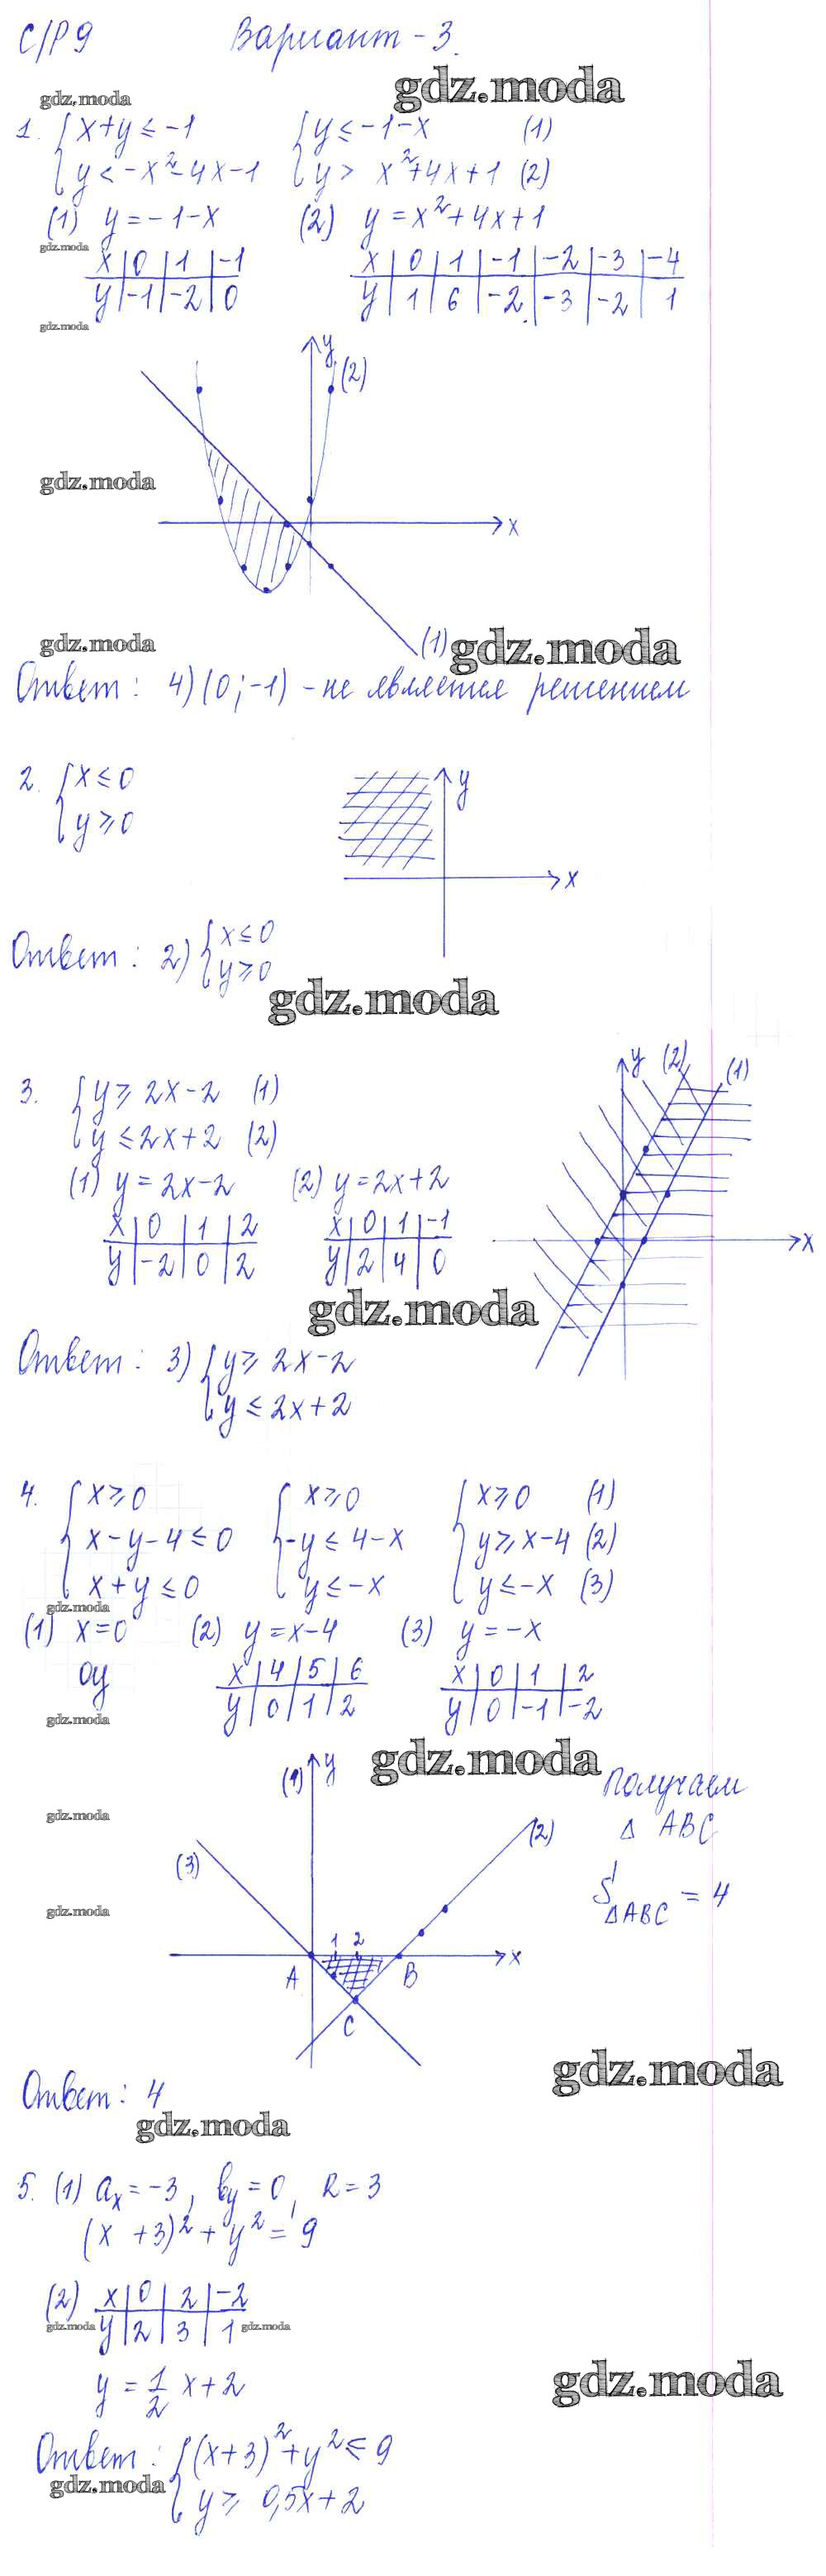 С/Р 9 Вариант - 3.
gdz.moda gdz.moda
1. { x+y ≤ -1 { y ≤ -1-x (1)
{ y < -x²-4x-1 { y > x²+4x+1 (2)
(1) y = -1-x (2) y = x²+4x+1
gdz.moda
x | 0 | 1 | -1 x | 0 | 1 | -1 | -2 | -3 | -4
y | -1 | -2 | 0 y | 1 | 6 | -2 | -3 | -2 | 1
gdz.moda
y
(2)
gdz.moda
x
gdz.moda (1) gdz.moda
Ответ: 4) (0;-1) - не является решением
2. { x ≤ 0 y
{ y ≥ 0
x
Ответ: 2) { x ≤ 0
{ y ≥ 0
gdz.moda
y (2) (1)
3. { y ≥ 2x-2 (1)
{ y ≤ 2x+2 (2)
(1) y = 2x-2 (2) y = 2x+2
x | 0 | 1 | 2 x | 0 | 1 | -1
y | -2 | 0 | 2 y | 2 | 4 | 0
x
gdz.moda
Ответ: 3) { y ≥ 2x-2
{ y ≤ 2x+2
4. { x ≥ 0 { x ≥ 0 { x ≥ 0 (1)
{ x-y-4 ≤ 0 { -y ≤ 4-x { y ≥ x-4 (2)
{ x+y ≤ 0 { y ≤ -x { y ≤ -x (3)
gdz.moda
(1) x=0 (2) y = x-4 (3) y = -x
Oy x | 4 | 5 | 6 x | 0 | 1 | 2
y | 0 | 1 | 2 y | 0 | -1 | -2
gdz.moda
gdz.moda
(1) y Получаем
gdz.moda Δ ABC
(2)
(3)
S ΔABC = 4
gdz.moda
1 2
x
A B
C
gdz.moda
Ответ: 4
gdz.moda
5. (1) aₓ = -3, b_y = 0, R = 3
(x +3)² + y² = 9
(2) x | 0 | 2 | -2
y | 2 | 3 | 1
gdz.moda gdz.moda
y = 1/2 x+2
gdz.moda
Ответ: { (x+3)² + y² ≤ 9
{ y ≥ 0,5x+2
gdz.moda